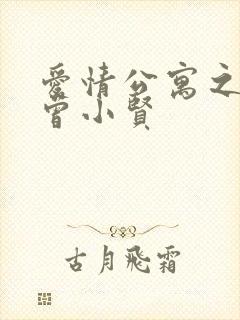 愛情公寓之
曾小賢
古月飛霜